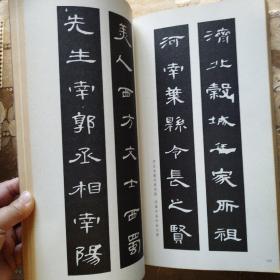 濟北穀城返家所祖
河南葉縣令長之賢
美人西方文士西蜀
先生南郭丞相南陽